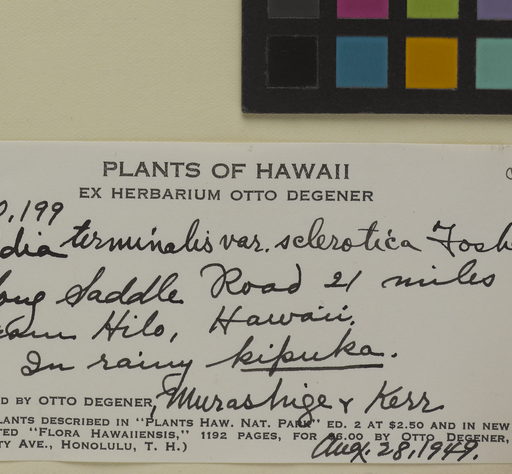 PLANTS OF HAWAII
EX HERBARIUM OTTO DEGENER
0,199
dia terminalis var. sclerotica Fosb
ong Saddle Road 21 miles
from Hilo, Hawaii.
In rainy kipuka.
D BY OTTO DEGENER, Murashige & Kerr
LANTS DESCRIBED IN "PLANTS HAW. NAT. PARK" ED. 2 AT $2.50 AND IN NEW
TED "FLORA HAWAIIENSIS," 1192 PAGES, FOR $6.00 BY OTTO DEGENER,
TY AVE., HONOLULU, T. H.) Aug. 28, 1949.